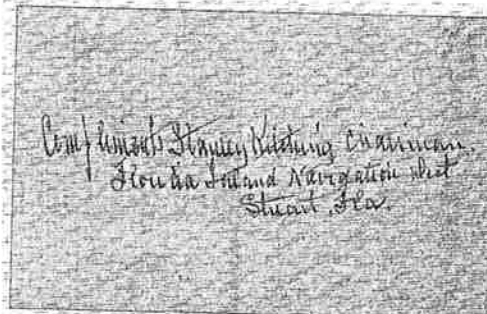 Compliments Stanley Kitching Chairman.
Florida Inland Navigation Dist
Stuart, Fla.